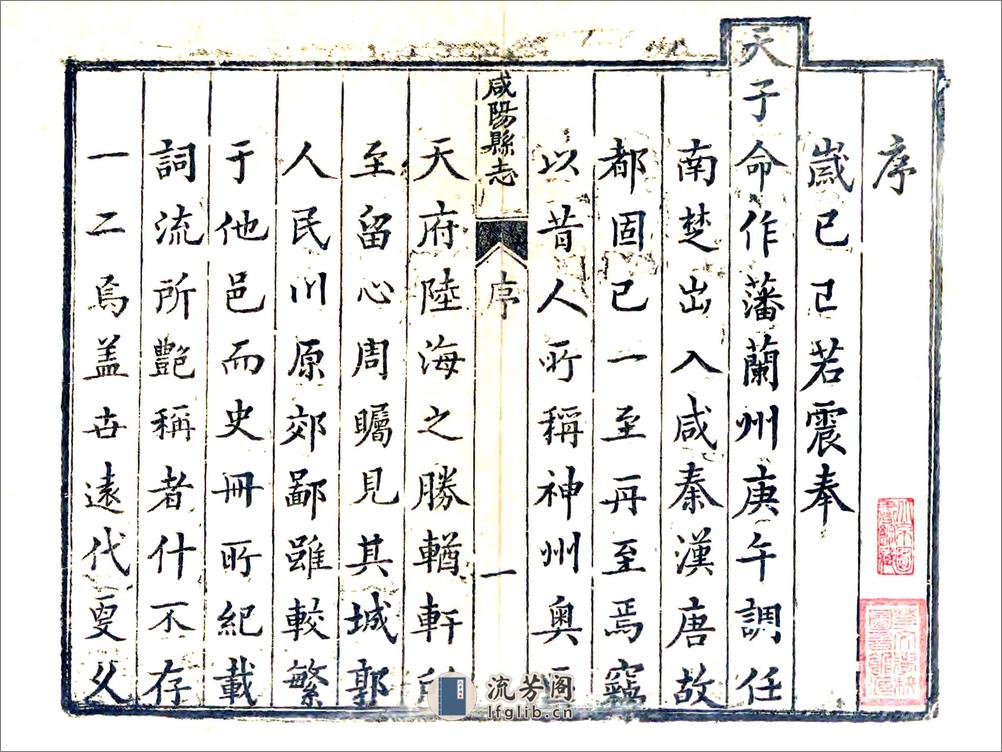 序
歲己巳若震奉
天子命作藩蘭州庚午調任
南楚出入咸秦漢唐故
都固已一至再至焉竊
以昔人所稱神州奧
咸陽縣志
序
一
天府陸海之勝輶軒
至留心周矚見其城郭
人民川原郊鄙雖較繁
于他邑而史冊所紀載
詞流所艷稱者什不存
一二焉盖世遠代更久
流芳阁
lfglib.cn